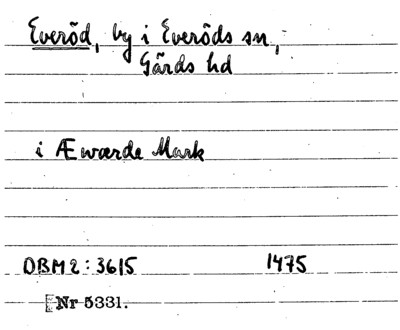 Everöd, by i Everöds sn,
Gärds hd
i Æwærde Mark
DBM 2: 3615 1475
Nr 5331.